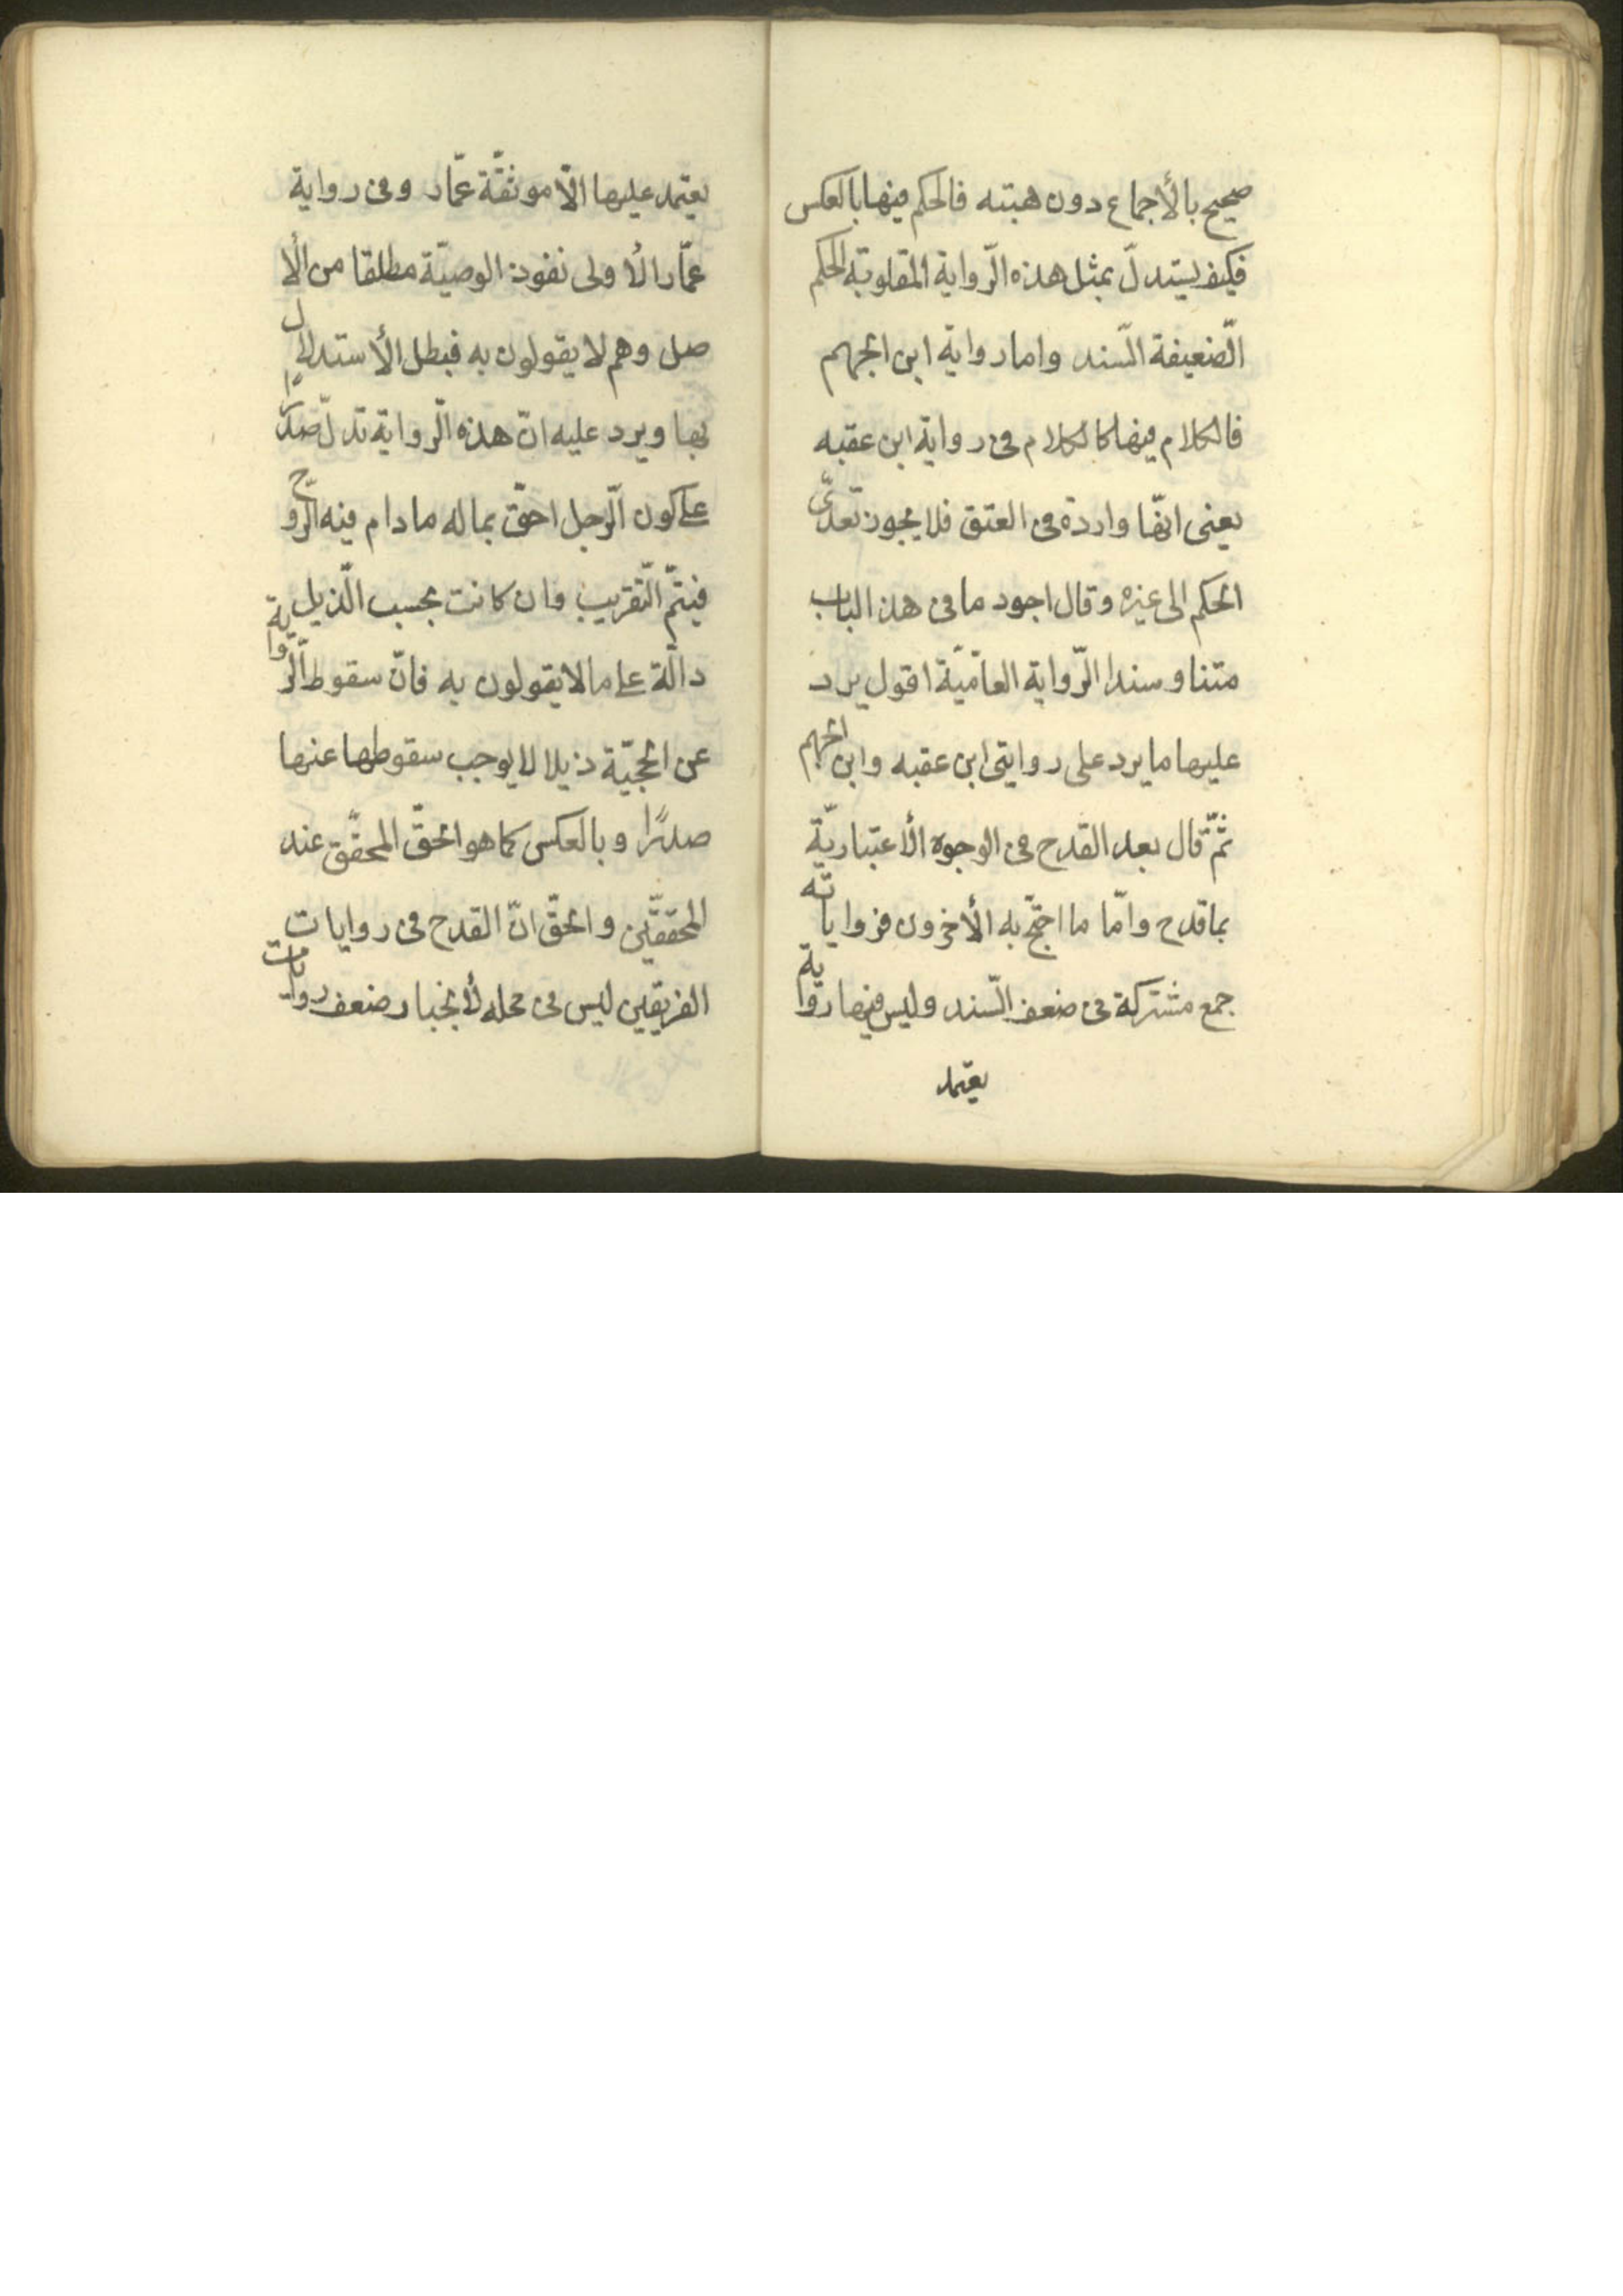 صحيح بالأجماع دون هبته فالحكم فيها بالعكس
فكيف يستدلّ بمثل هذه الرّواية المقلوبة الحكم
الضّعيفة السّند واما رواية ابن الجهم
فالكلام فيها كالكلام فى رواية ابن عقبه
يعنى انّها واردة فى العتق فلا يجوز تعدّى
الحكم الى غيره وقال اجود ما فى هذ الباب
متنا وسندا الرّواية العاميّة اقول يرد
عليها ما يرد على روايتى ابن عقبه وابن الجهم
ثمّ قال بعد القدح فى الوجوه الأعتباريّة
بما قدح وامّا ما احتجّ به الأخرون فرواياته
جمع مشتركة فى ضعف السّند وليس فيها رواية
يعتمد
يعتمد عليها الّا موثقّة عمّار وفى رواية
عمّار الأولى نفوذ الوصيّة مطلقا من الأ
صل وهم لا يقولون به فبطل الأستدلال
بها ويرد عليه انّ هذه الرّواية تدلّ صدرًا
على كون الرّجل احقّ بماله ما دام فيه الرّوح
فيتمّ التّقريب وان كانت بحسب الذّيل
دالّة على ما لا يقولون به فانّ سقوط الرّواية
عن الحجيّة ذيلا لا يوجب سقوطها عنها
صدرًا وبالعكس كما هو الحقّ المحقّق عند
المحققّين والحقّ انّ القدح فى روايات
الفريقين ليس فى محله لأنجبار ضعف روايات